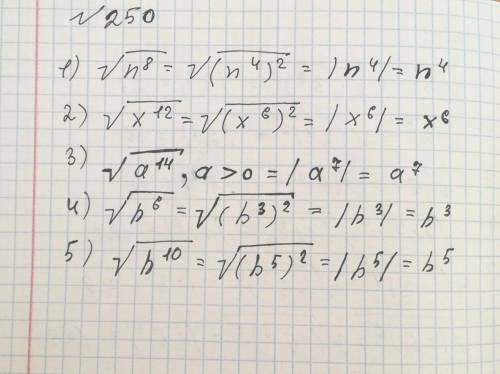 √250
1) √n⁸ = √(n⁴)² = |n⁴| = n⁴
2) √x¹² = √(x⁶)² = |x⁶| = x⁶
3) √a¹⁴, a>0 = |a⁷| = a⁷
4) √b⁶ = √(b³)² = |b³| = b³
5) √b¹⁰ = √(b⁵)² = |b⁵| = b⁵